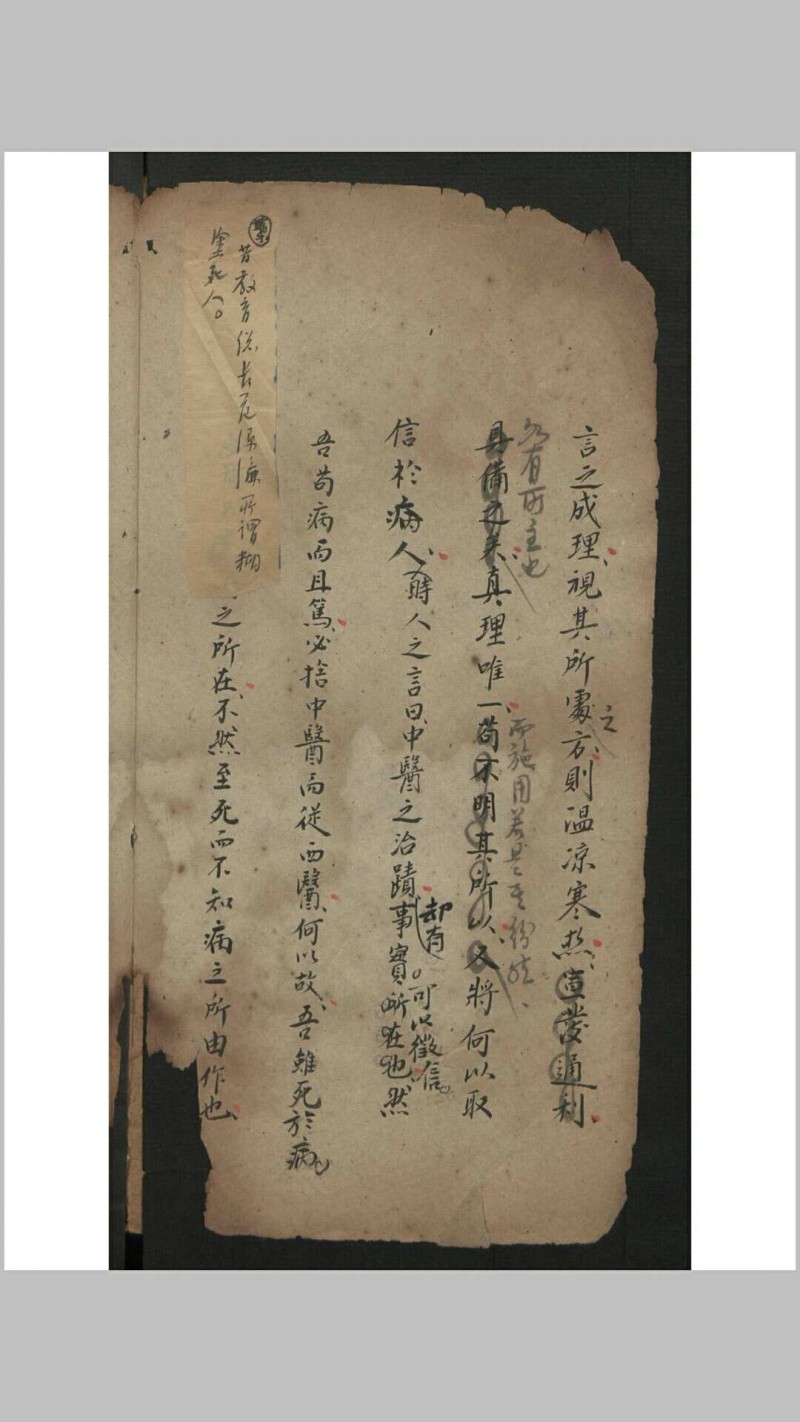 言之成理、視其所處之方、則温凉寒热、宣發通利、
各有所主也
具備
真理唯一、苟不明其所以、又將何以取
而施用若是
信於病人、時人之言曰、中醫之治蹟、事實所在也、然
却有。可以徵信。
吾苟病而且篤、必捨中醫而從西醫、何以故、吾雖死於病、
之所在、不然至死而不知病之所由作也、
昔教育總長范源濂所謂糊
塗死人。